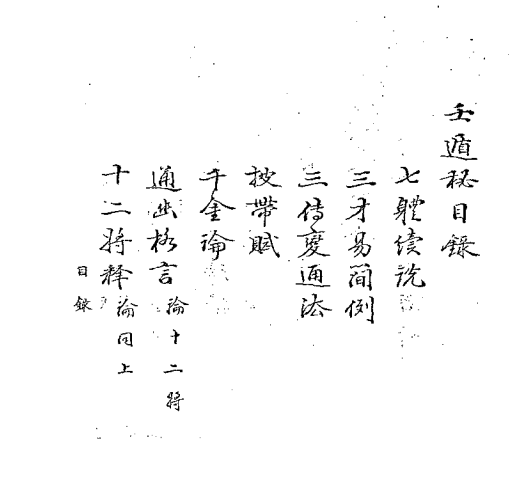 壬遁秘目錄
七體續説
三才易簡例
三傳變通法
披帶賦
千金論
通幽格言 論十二將
十二將釋 論同上
目錄